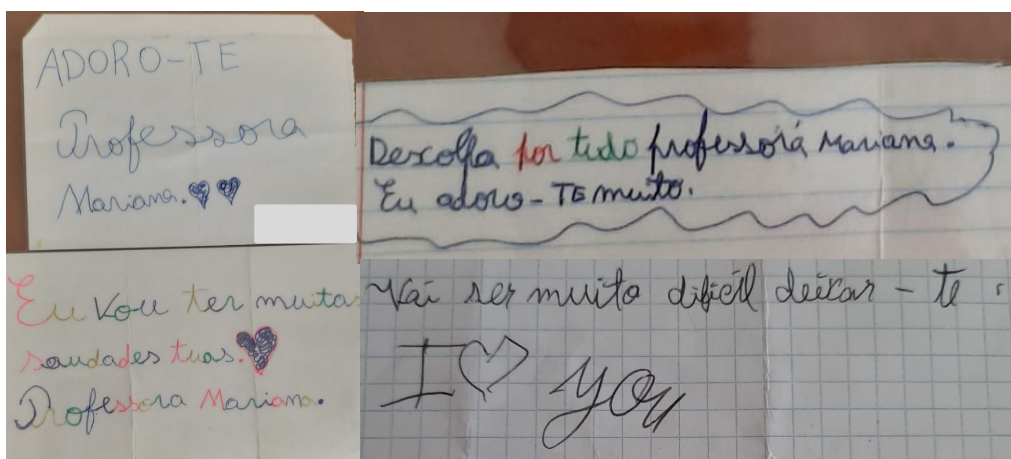 ADORO-TE
Professora
Mariana.
Descolpa por tudo professora Mariana.
Eu adoro-TE muito.
Eu vou ter muitas
saudades tuas.
Professora Mariana.
Vai ser muito dificil deixar-te.
I ♡ you